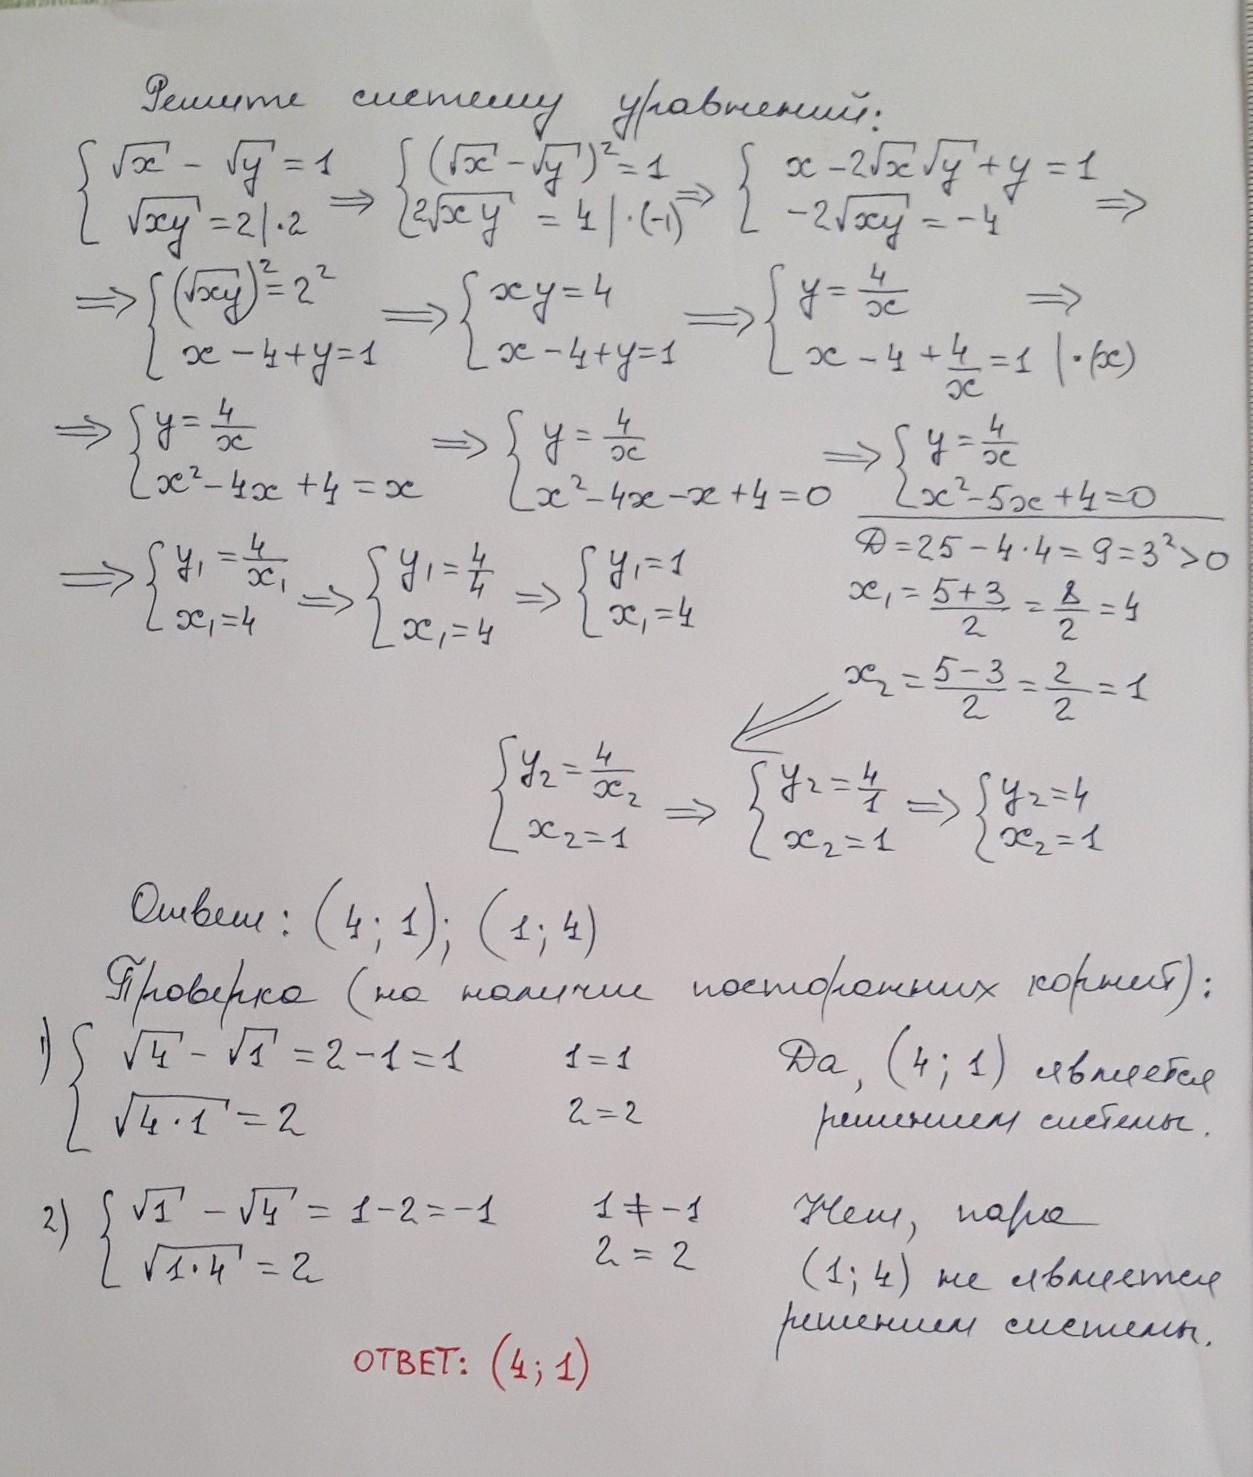 Решите систему уравнений:
{ √x - √y = 1 ; √xy = 2 | · 2 ⇒ { (√x - √y)² = 1 ; 2√xy = 4 | · (-1) ⇒ { x - 2√x√y + y = 1 ; -2√xy = -4 ⇒
⇒ { (√xy)² = 2² ; x - 4 + y = 1 ⇒ { xy = 4 ; x - 4 + y = 1 ⇒ { y = 4/x ; x - 4 + 4/x = 1 | · (x) ⇒
⇒ { y = 4/x ; x² - 4x + 4 = x ⇒ { y = 4/x ; x² - 4x - x + 4 = 0 ⇒ { y = 4/x ; x² - 5x + 4 = 0
D = 25 - 4·4 = 9 = 3² > 0
x₁ = (5+3)/2 = 8/2 = 4
x₂ = (5-3)/2 = 2/2 = 1
⇒ { y₁ = 4/x₁ ; x₁ = 4 ⇒ { y₁ = 4/4 ; x₁ = 4 ⇒ { y₁ = 1 ; x₁ = 4
{ y₂ = 4/x₂ ; x₂ = 1 ⇒ { y₂ = 4/1 ; x₂ = 1 ⇒ { y₂ = 4 ; x₂ = 1
Ответ: (4; 1); (1; 4)
Проверка (на наличие посторонних корней):
1) { √4 - √1 = 2 - 1 = 1 ; √4·1 = 2
1 = 1
2 = 2
Да, (4; 1) является
решением системы.
2) { √1 - √4 = 1 - 2 = -1 ; √1·4 = 2
1 ≠ -1
2 = 2
Нет, пара
(1; 4) не является
решением системы.
ОТВЕТ: (4; 1)